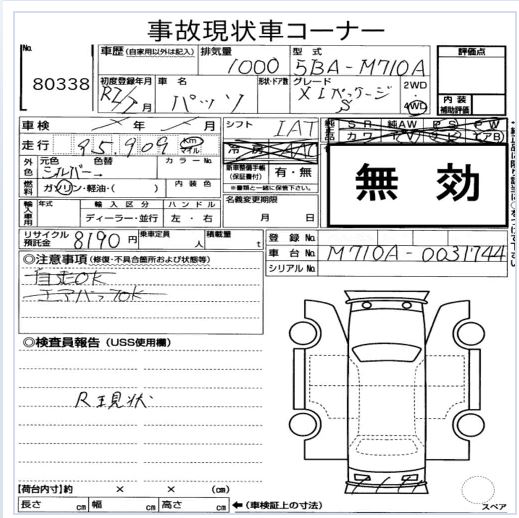 事故現状車コーナー
No.
80338
車歴 (自家用以外は記入)
排気量
1000
型式
5BA-M710A
評価点
初度登録年月
車名
パッソ
形状・ドア数
グレード
X Lパッケージ
S
2WD
・
4WD
内装
補助評価
車検
年 月
シフト
IAT
純正品
SR 純AW PS PW
カワ TV ナビ エアB
走行
95,909
Km
マイル
冷房 AAC
外色
元色
シルバー
色替
カラーNo.
新車整備手帳
(保証書付)
有・無
※書類と一緒に保管下さい。
無効
燃料
ガソリン・軽油・( )
内装色
名義変更期限
月 日
輸入車用
年式
輸入区分
ディーラー・並行
ハンドル
左・右
リサイクル
預託金
8190円
乗車定員
人
積載量
t
登録No.
車台No.
M710A-0031744
シリアルNo.
◎注意事項 (修復・不具合箇所および状態等)
自走OK
エアバックOK
◎検査員報告 (USS使用欄)
R現状
【荷台内寸】約 × × (cm)
長さ cm 幅 cm 高さ cm
←(車検証上の寸法)
スペア